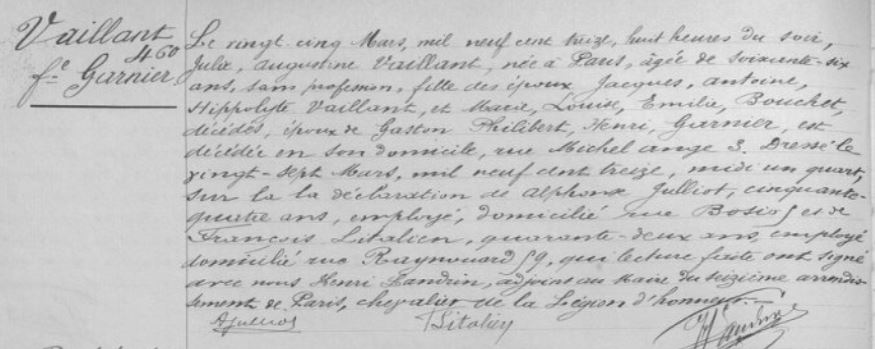 Vaillant
460
fe Garnier
Le vingt-cinq Mars, mil neuf cent treize, huit heures du soir,
Julie, augustine Vaillant, née à Paris, âgée de soixante-six
ans, sans profession, fille des époux Jacques, antoine,
Hippolyte Vaillant, et Marie, Louise, Emilie, Bouchet,
décédés, époux de Gaston Philibert, Henri, Garnier, est
décédée en son domicile, rue Michel ange 3. Dressé le
vingt-sept Mars, mil neuf cent treize, midi un quart,
sur la la déclaration de Alphonse Julliot, cinquante-
quatre ans, employé, domicilié rue Bosio 5 et de
François Litalien, quarante-deux ans, employé
domicilié rue Raynouard 59, qui lecture faite ont signé
avec nous Henri Landrin, adjoint au Maire du seizième arrondis-
sement de Paris, chevalier de la Légion d'honneur.
AJulliot
FLitalien
HLandrin